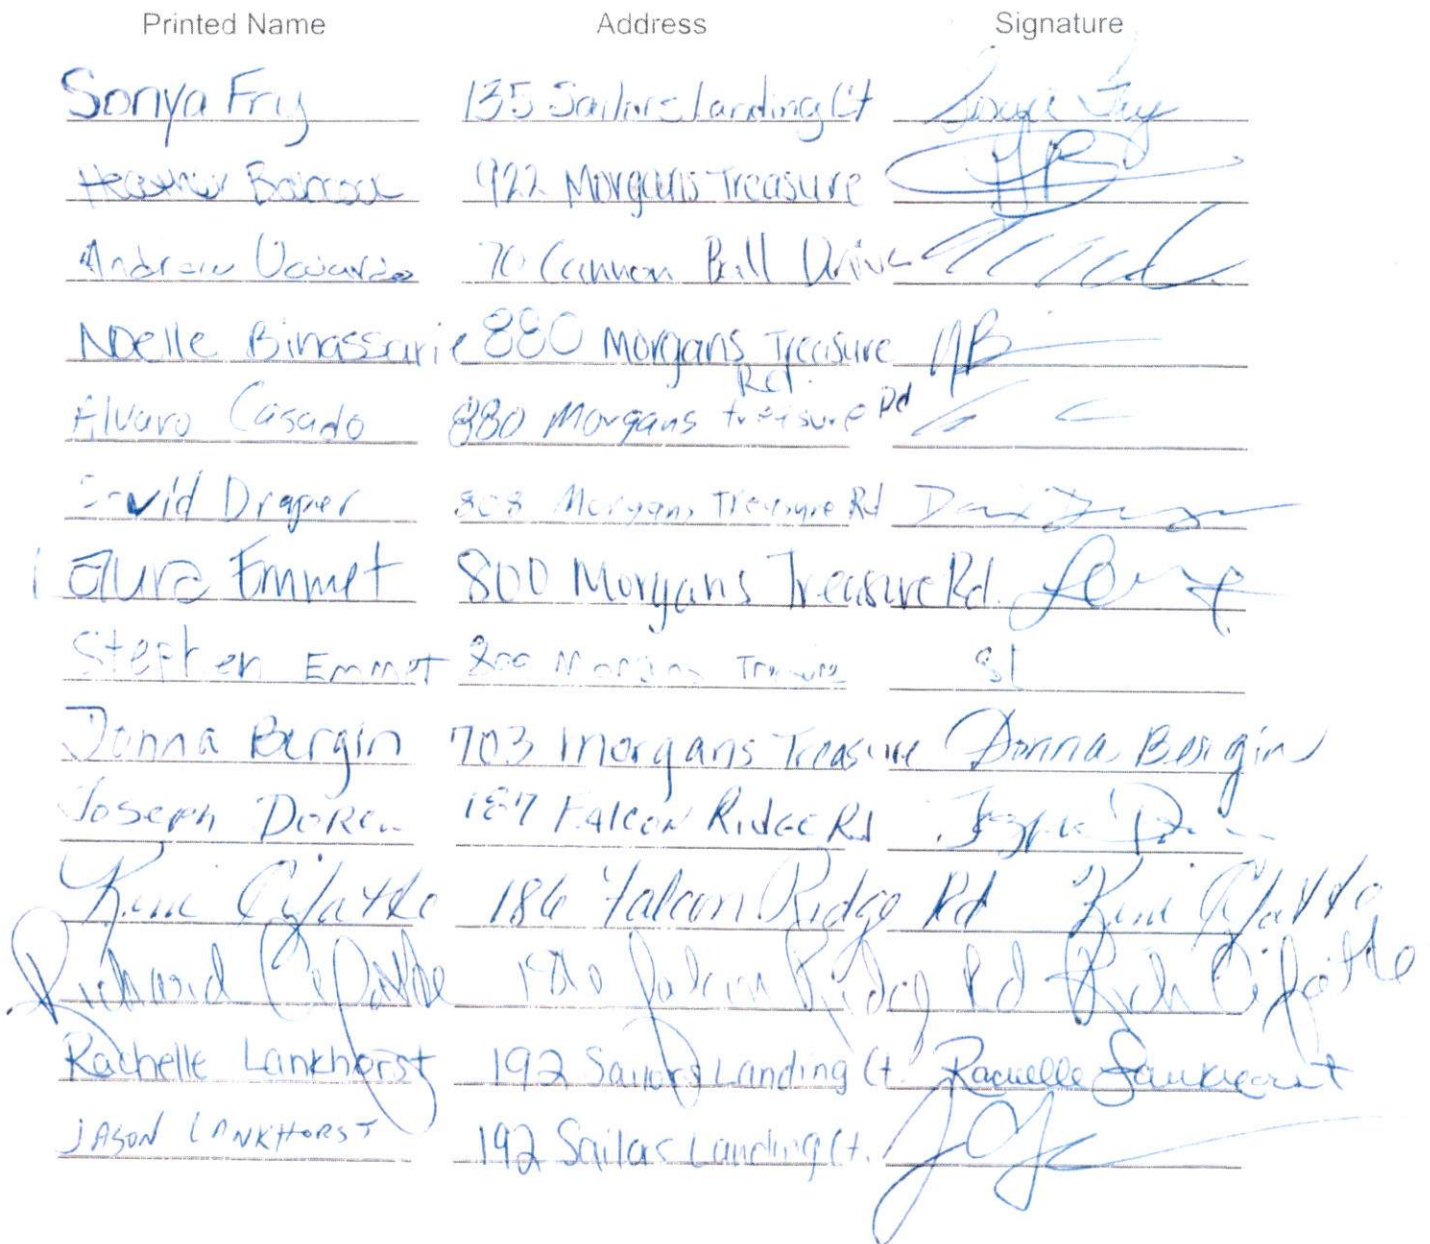 Printed Name Address Signature
Sonya Fry 135 Sailors Landing Ct Sonya Fry
Heather Babcock 922 Morgans Treasure HB
Andrew 70 Cannon Ball Drive
Noelle Binassarie 880 Morgans Treasure Rd. NB
Alvaro Casado 880 Morgans treasure Rd
David Draper 808 Morgans Treasure Rd
Laura Emmet 800 Morgans Treasure Rd.
Stephen Emmet 800 Morgans Treasure
Donna Bergin 703 Morgans Treasure Donna Bergin
Joseph 187 Falcon Ridge Rd Joseph
Kimi Cifatte 186 Falcon Ridge Rd Kimi
Richard 186 Falcon Ridge Rd Rich
Rachelle Lankhorst 192 Sailors Landing Ct. Rachelle Lankhorst
JASON LANKHORST 192 Sailors Landing Ct.